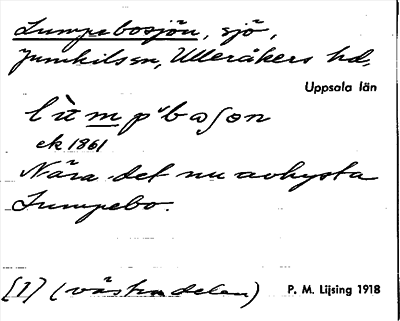 Lumpebosjön, sjö,
Jumkils sn, Ulleråkers hd,
Uppsala län
lu̇̀mpᵛboʃon
ek 1861
Nära det nu avhysta
Lumpebo.
[1] (västra delen)
P. M. Lijsing 1918